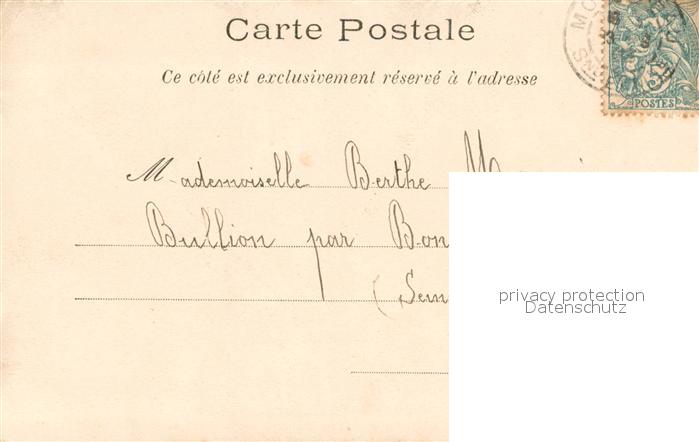 Carte Postale
Ce côté est exclusivement réservé à l'adresse
5
POSTES
Mademoiselle Berthe
Bullion par
privacy protection
Datenschutz